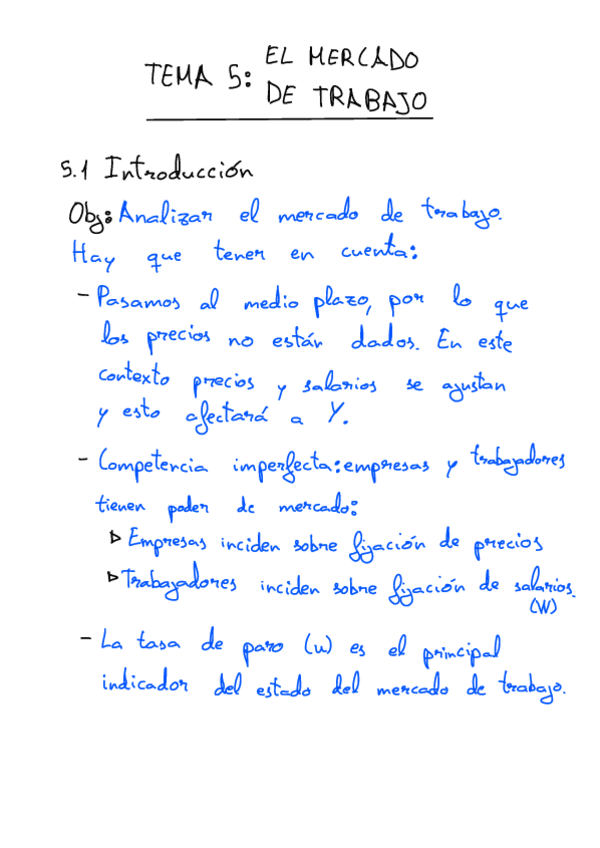 TEMA 5: EL MERCADO
DE TRABAJO
5.1 Introducción
Obj: Analizar el mercado de trabajo.
Hay que tener en cuenta:
- Pasamos al medio plazo, por lo que
los precios no están dados. En este
contexto precios y salarios se ajustan
y esto afectará a Y.
- Competencia imperfecta: empresas y trabajadores
tienen poder de mercado:
▷ Empresas inciden sobre fijación de precios
▷ Trabajadores inciden sobre fijación de salarios.
(W)
- La tasa de paro (u) es el principal
indicador del estado del mercado de trabajo.